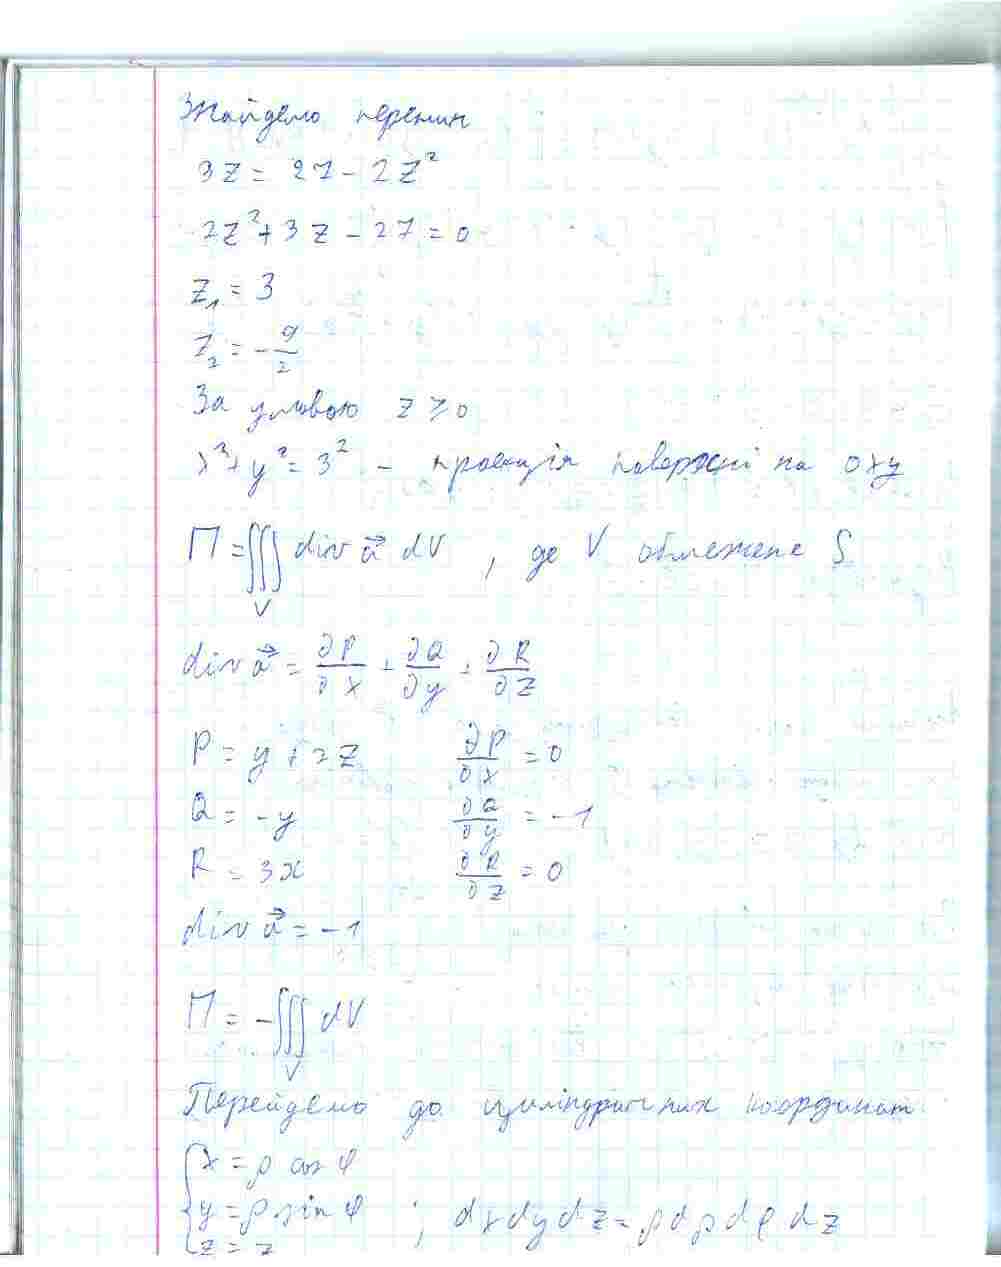 Знайдемо перетин
3z = 27 - 2z²
2z² + 3z - 27 = 0
z₁ = 3
z₂ = -9/2
За умовою z ≥ 0
x² + y² = 3² - проекція поверхні на oxy
П = ∭_V div a⃗ dV , де V обмежене S
div a⃗ = ∂P/∂x + ∂Q/∂y + ∂R/∂z
P = y + 2z ∂P/∂x = 0
Q = -y ∂Q/∂y = -1
R = 3x ∂R/∂z = 0
div a⃗ = -1
П = -∭_V dV
Перейдемо до циліндричних координат
{ x = ρ cos φ
y = ρ sin φ ; dxdydz = ρdρdφdz
z = z